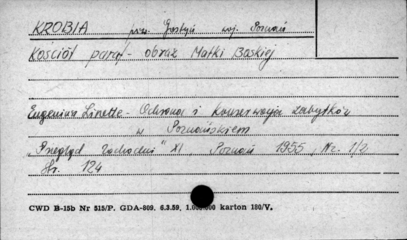 KROBIA pow. Gostyń woj. Poznań
Kościół paraf. - obraz Matki Boskiej
Eugeniusz Linette - Ochrona i konserwacja zabytków
w Poznańskiem
"Przegląd Zachodni" XI, Poznań 1955, Nr. 1/2
str. 124
CWD B-15b Nr 515/P. GDA-809. 6.3.59. karton 180/V.